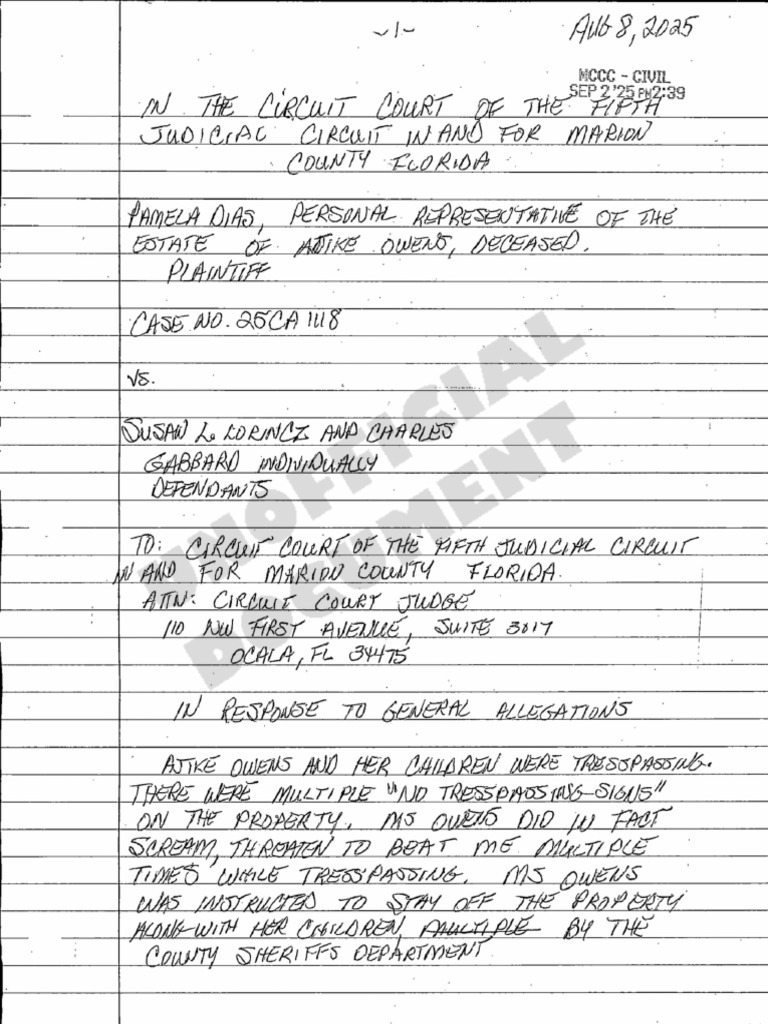 -1-
AUG 8, 2025
MCCC - CIVIL
SEP 2 '25 PM 2:39
IN THE CIRCUIT COURT OF THE FIFTH
JUDICIAL CIRCUIT IN AND FOR MARION
COUNTY FLORIDA
PAMELA DIAS, PERSONAL REPRESENTATIVE OF THE
ESTATE OF AJIKE OWENS, DECEASED.
PLAINTIFF
CASE NO. 25CA1118
VS.
SUSAN L. LORINCZ AND CHARLES
GABBARD INDIVIDUALLY
DEFENDANTS
TO: CIRCUIT COURT OF THE FIFTH JUDICIAL CIRCUIT
IN AND FOR MARION COUNTY FLORIDA.
ATTN: CIRCUIT COURT JUDGE
110 NW FIRST AVENUE, SUITE 3017
OCALA, FL 34475
IN RESPONSE TO GENERAL ALLEGATIONS
AJIKE OWENS AND HER CHILDREN WERE TRESSPASSING.
THERE WERE MULTIPLE "NO TRESSPASSING SIGNS"
ON THE PROPERTY. MS OWENS DID IN FACT
SCREAM, THREATEN TO BEAT ME MULTIPLE
TIMES WHILE TRESSPASSING. MS OWENS
WAS INSTRUCTED TO STAY OFF THE PROPERTY
ALONG WITH HER CHILDREN, MULTIPLE BY THE
COUNTY SHERIFFS DEPARTMENT
UNOFFICIAL
DOCUMENT